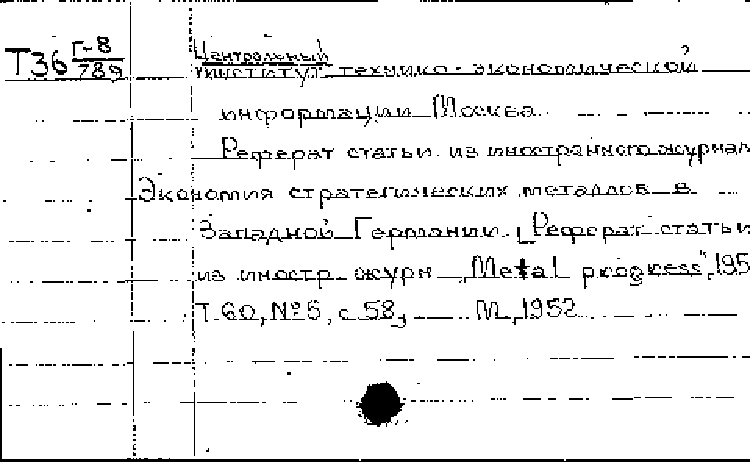 Т36 Г-8/789
Центральный
институт технико-экономической
информации Москва
Реферат статьи из иностранного журнал
Экономия стратегических металлов в
Западной Германии. [Реферат статьи
из иностр. журн. „Metal progress", 195
Т. 60, № 6, с 58,] М., 1952